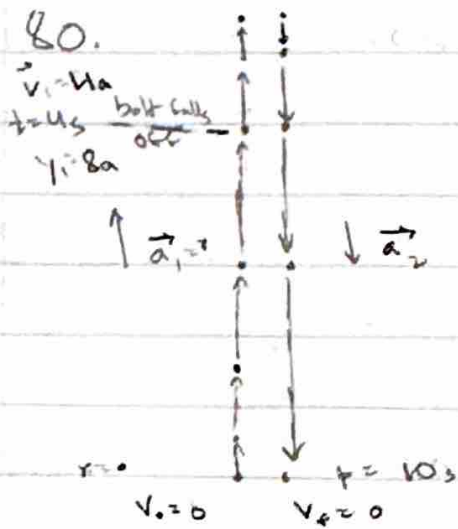 80.
v⃗₁ = 4a
t = 4s bolt falls off
y₁ = 8a
a⃗₁ = ?
a⃗₂
t = 10s
V₀ = 0 V_f = 0